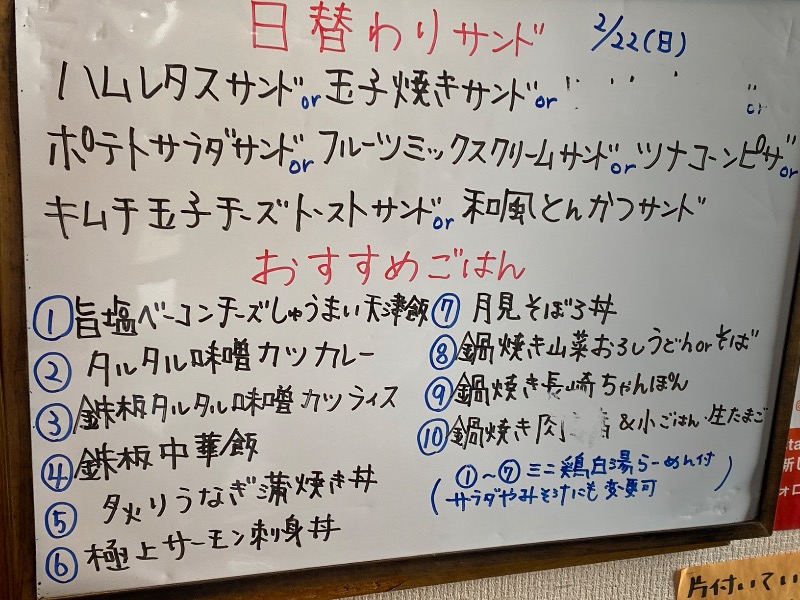 日替わりサンド 2/22(日)
ハムレタスサンドor玉子焼きサンドor
or
ポテトサラダサンドorフルーツミックスクリームサンドorツナコーンピザor
キムチ玉子チーズトーストサンドor和風とんかつサンド
おすすめごはん
①旨塩ベーコンチーズしゅうまい天津飯
②タルタル味噌カツカレー
③鉄板タルタル味噌カツライス
④鉄板中華飯
⑤炙りうなぎ蒲焼き丼
⑥極上サーモン刺身丼
⑦月見そぼろ丼
⑧鍋焼き山菜おろしうどんorそば
⑨鍋焼き長崎ちゃんぽん
⑩鍋焼き肉 &小ごはん・生たまご
(①~⑦ミニ鶏白湯らーめん付
サラダやみそ汁にも変更可)
片付いてい